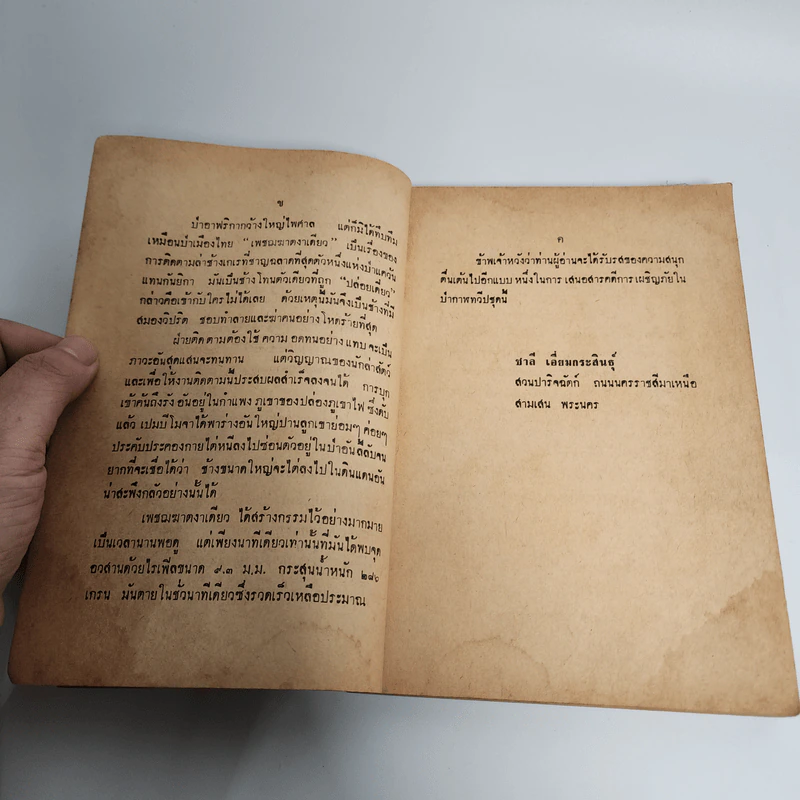 ข
ป่าอาฟริกากว้างใหญ่ไพศาล แต่ก็มิได้ทึบทึม
เหมือนป่าเมืองไทย "เพชฌฆาตงาเดียว" เป็นเรื่องของ
การติดตามล่าช้างเกเรที่ชาญฉลาดที่สุดตัวหนึ่งแห่งป่าแคว้น
แทนกันยิกา มันเป็นช้างโทนตัวเดียวที่ถูก "ปล่อยเดี่ยว"
กล่าวคือเข้ากับใครไม่ได้เลย ด้วยเหตุนี้มันจึงเป็นช้างที่มี
สมองวิปริต ชอบทำลายและฆ่าคนอย่างโหดร้ายที่สุด
ฝ่ายติดตามต้องใช้ความอดทนอย่างแทบจะเป็น
ภาวะอันสุดแสนจะทนทาน แต่วิญญาณของนักล่าสัตว์
และเพื่อให้งานติดตามนี้ประสบผลสำเร็จลงจนได้ การบุก
เข้าค้นถึงรังอันอยู่ในกำแพงภูเขาของปล่องภูเขาไฟซึ่งดับ
แล้ว เปมบีโมจาได้พาร่างอันใหญ่ปานลูกเขาย่อมๆ ค่อยๆ
ประคับประคองกายไต่หนีลงไปซ่อนตัวอยู่ในป่าอันลี้ลับจน
ยากที่จะเชื่อได้ว่า ช้างขนาดใหญ่จะไต่ลงไปในดินแดนอัน
น่าสะพึงกลัวอย่างนั้นได้
เพชฌฆาตงาเดียว ได้สร้างกรรมไว้อย่างมากมาย
เป็นเวลานานพอดู แต่เพียงนาทีเดียวเท่านั้นที่มันได้พบจุด
อวสานด้วยไรเฟิลขนาด ๙.๓ ม.ม. กระสุนน้ำหนัก ๒๘๖
เกรน มันตายในชั่วนาทีเดียวซึ่งรวดเร็วเหลือประมาณ
ค
ข้าพเจ้าหวังว่าท่านผู้อ่านจะได้รับรสของความสนุก
ตื่นเต้นไปอีกแบบหนึ่งในการเสนอสารคดีการเผชิญภัยใน
ป่ากาฬทวีปชุดนี้
ชาลี เอี่ยมกระสินธุ์
สวนปาริจฉัตก์ ถนนนครราชสีมาเหนือ
สามเสน พระนคร